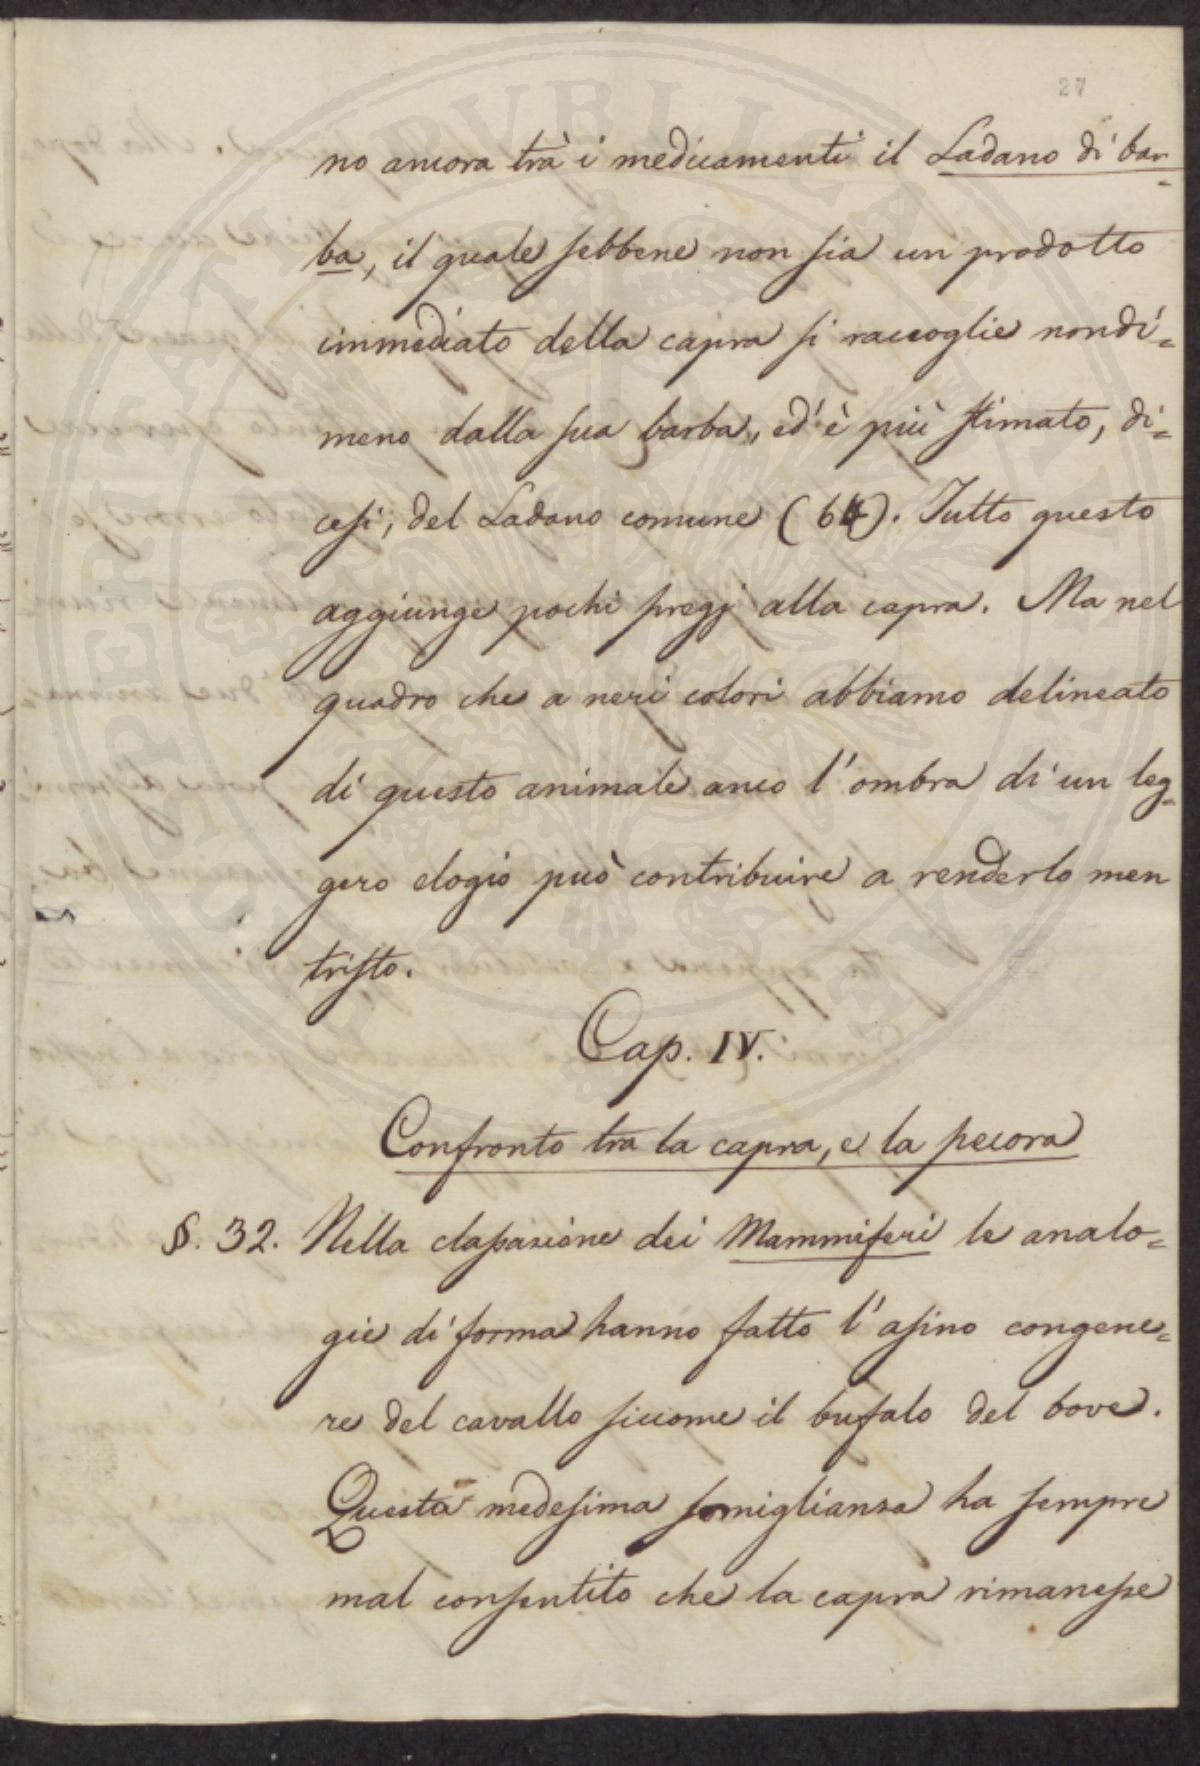 27
no ancora trà i medicamenti il Ladano di bar=
ba, il quale sebbene non sia un prodotto
immediato della capra si raccoglie nondi=
meno dalla sua barba, ed è più stimato, di=
cesi, del Ladano comune (64). Tutto questo
aggiunge pochi pregj alla capra. Ma nel
quadro che a neri colori abbiamo delineato
di questo animale anco l'ombra di un leg=
gero elogio può contribuire a renderlo men
tristo.
Cap. IV.
Confronto tra la capra, e la pecora
§. 32. Nella classazione dei Mammiferi le analo=
gie di forma hanno fatto l'asino congene=
re del cavallo siccome il bufalo del bove.
Questa medesima somiglianza ha sempre
mal consentito che la capra rimanesse